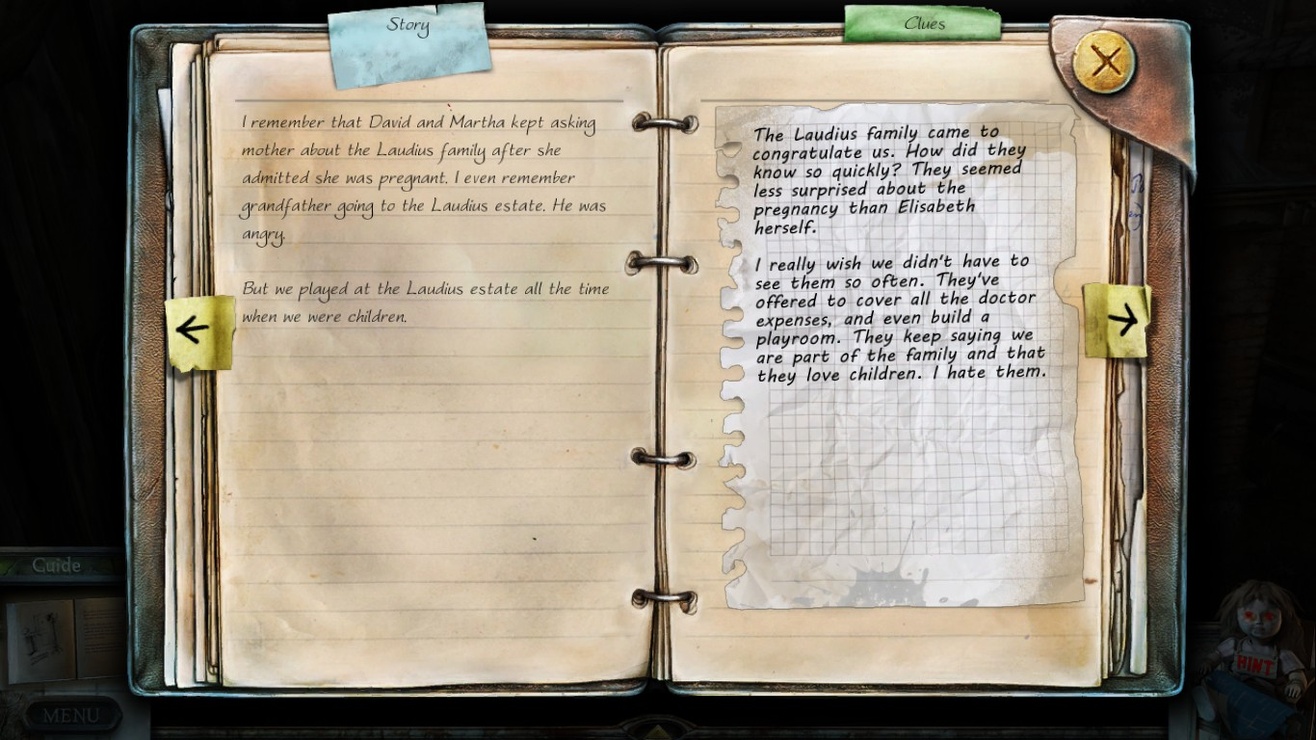 Story
Clues
I remember that David and Martha kept asking
mother about the Laudius family after she
admitted she was pregnant. I even remember
grandfather going to the Laudius estate. He was
angry.
But we played at the Laudius estate all the time
when we were children.
The Laudius family came to
congratulate us. How did they
know so quickly? They seemed
less surprised about the
pregnancy than Elisabeth
herself.
I really wish we didn't have to
see them so often. They've
offered to cover all the doctor
expenses, and even build a
playroom. They keep saying we
are part of the family and that
they love children. I hate them.
Guide
MENU
HINT